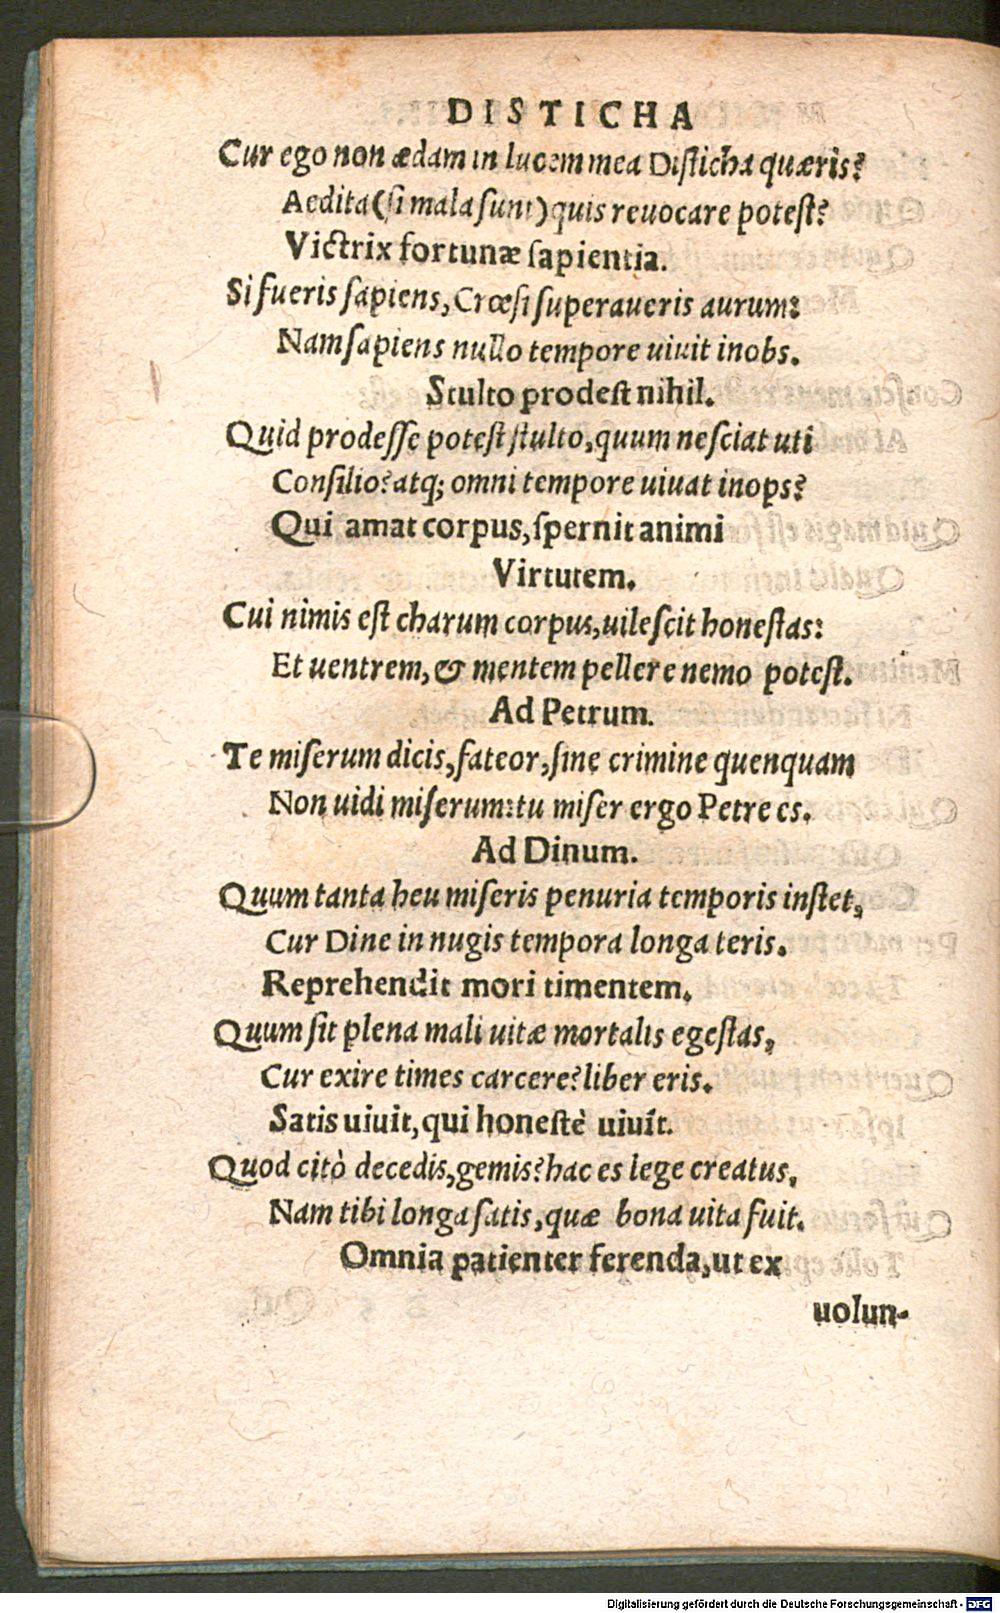 DISTICHA
Cur ego non ædam in lucem mea Disticha quæris?
Aedita (si mala sunt) quis reuocare potest?
Victrix fortunæ sapientia.
Si fueris sapiens, Crœsi superaueris aurum:
Nam sapiens nullo tempore uiuit inobs.
Stulto prodest nihil.
Quid prodesse potest stulto, quum nesciat uti
Consilio? atq; omni tempore uiuat inops?
Qui amat corpus, spernit animi
Virtutem.
Cui nimis est charum corpus, uilescit honestas:
Et uentrem, & mentem pellere nemo potest.
Ad Petrum.
Te miserum dicis, fateor, sine crimine quenquam
Non uidi miserum: tu miser ergo Petre es.
Ad Dinum.
Quum tanta heu miseris penuria temporis instet,
Cur Dine in nugis tempora longa teris.
Reprehendit mori timentem.
Quum sit plena mali uitæ mortalis egestas,
Cur exire times carcere? liber eris.
Satis uiuit, qui honestè uiuit.
Quod citò decedis, gemis? hac es lege creatus,
Nam tibi longa satis, quæ bona uita fuit.
Omnia patienter ferenda, ut ex
uolun-
Digitalisierung gefördert durch die Deutsche Forschungsgemeinschaft - DFG